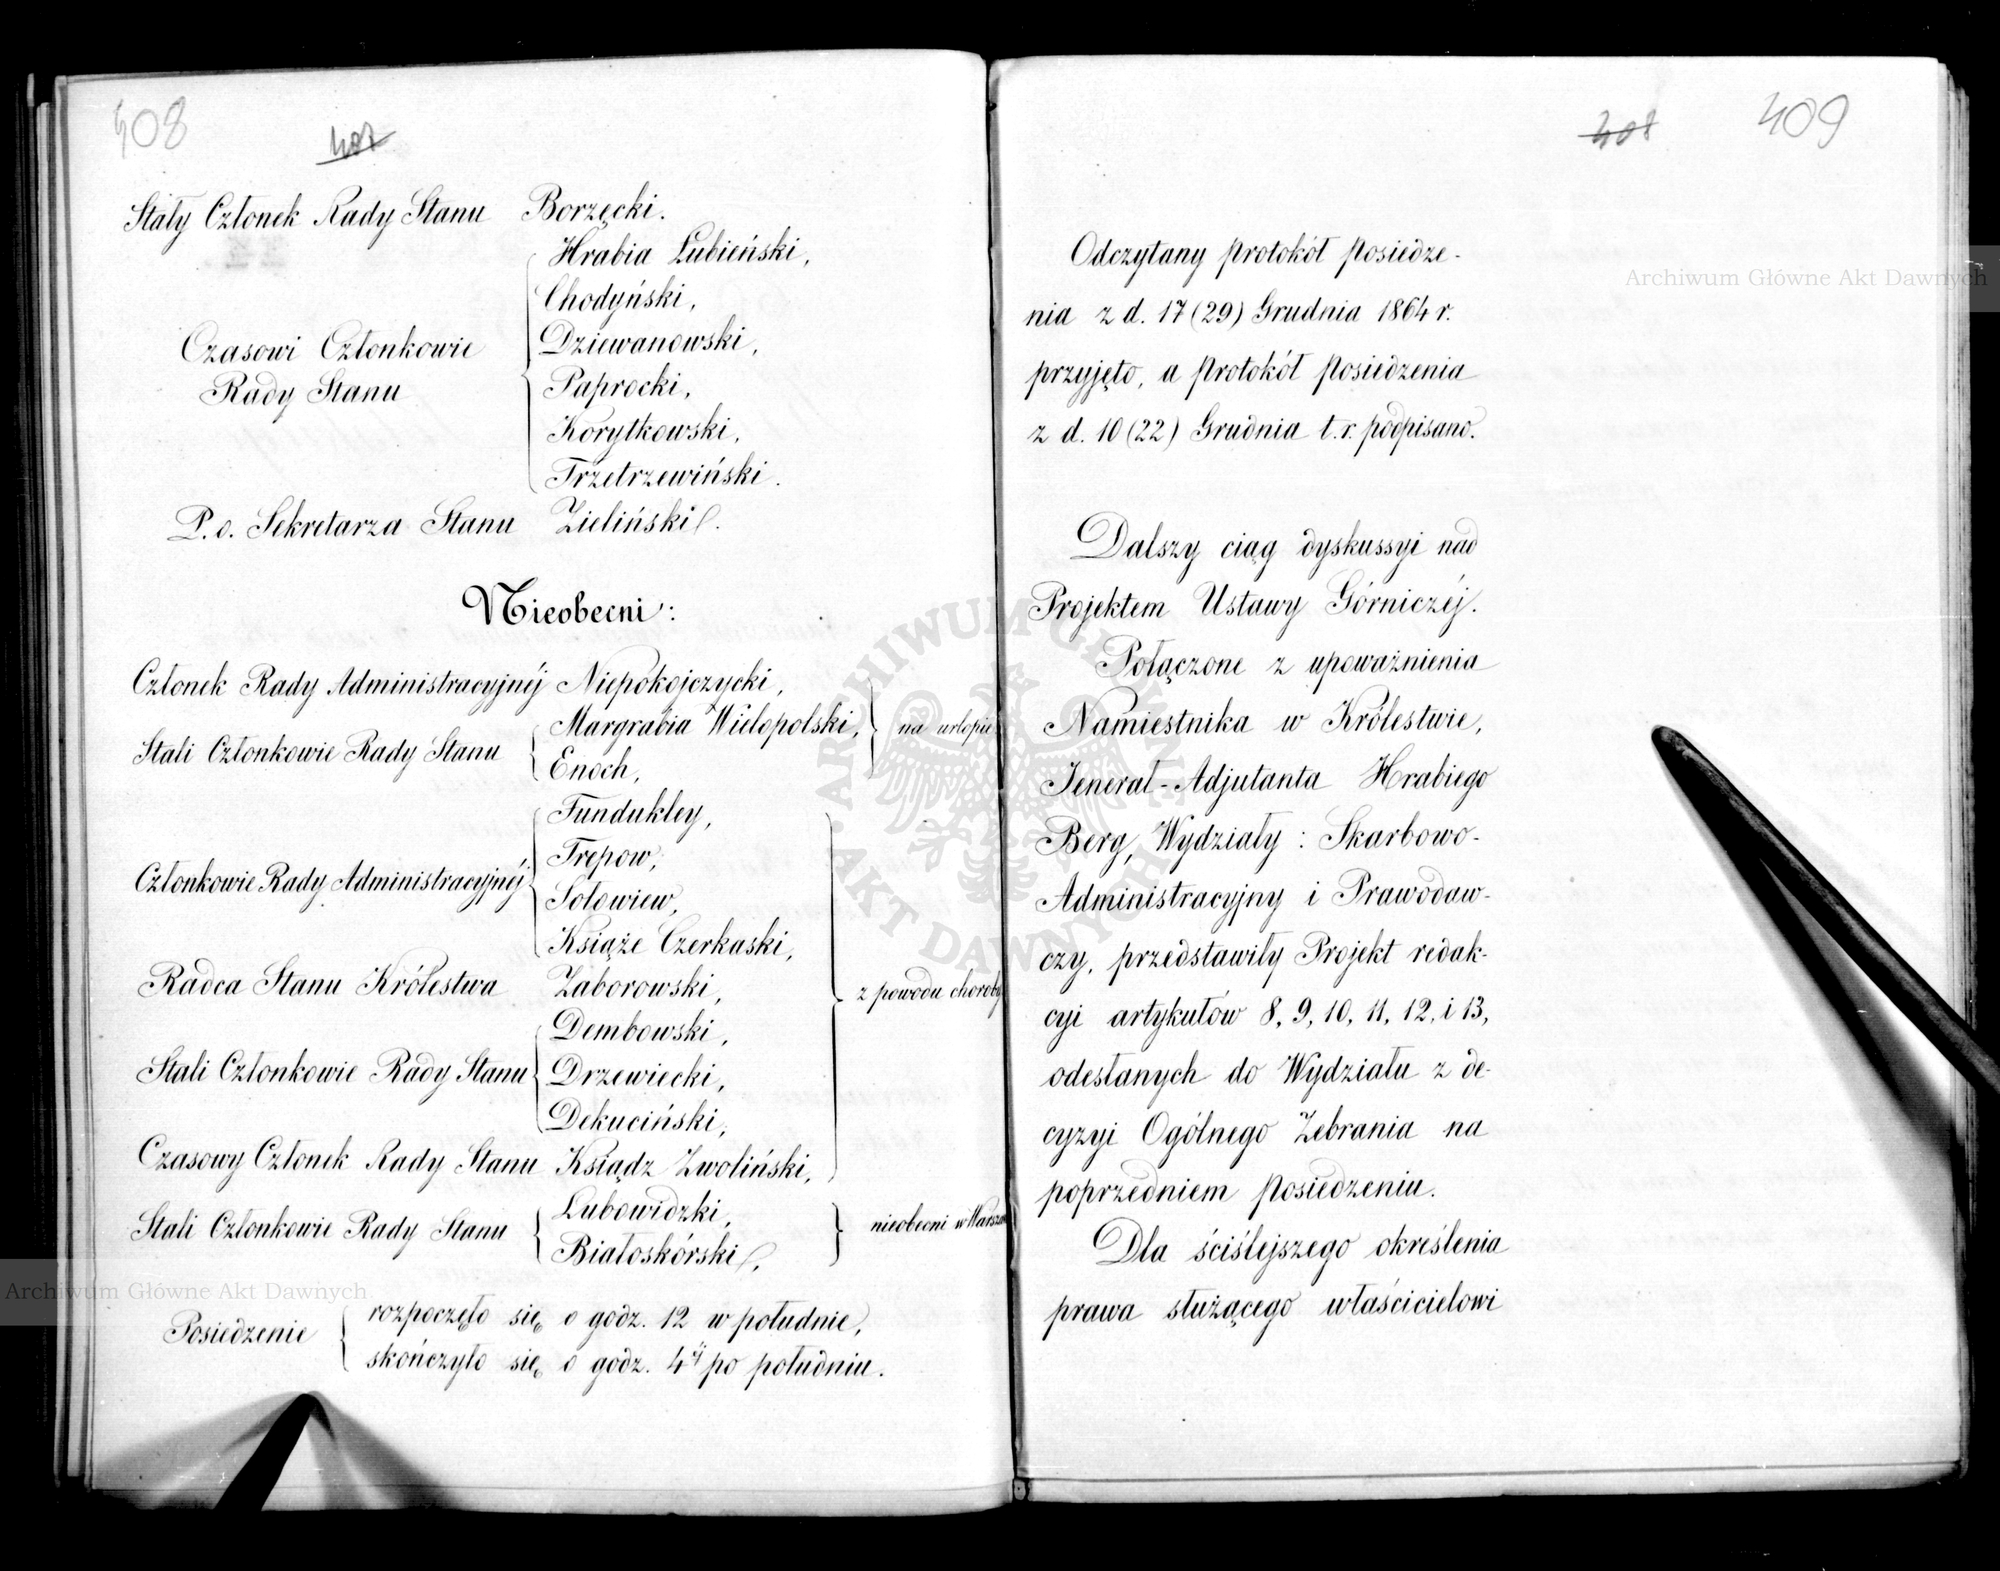 408
407
Stały Członek Rady Stanu Borzęcki.
Czasowi Członkowie
Rady Stanu
Hrabia Łubieński,
Chodyński,
Dziewanowski,
Paprocki,
Korytkowski,
Trzetrzewiński.
P. o. Sekretarza Stanu Zieliński.
Nieobecni:
Członek Rady Administracyjnéj Niepokojczycki,
Stali Członkowie Rady Stanu
Margrabia Wielopolski,
Enoch,
na urlopie
Członkowie Rady Administracyjnéj
Fundukley,
Trepow,
Sołowiew,
Książe Czerkaski,
Radca Stanu Królestwa Zaborowski,
Stali Członkowie Rady Stanu
Dembowski,
Drzewiecki,
Dekuciński,
Czasowy Członek Rady Stanu Ksiądz Zwoliński,
z powodu choroby
Stali Członkowie Rady Stanu
Łubowidzki,
Białoskórski,
nieobecni w Warsza
Posiedzenie
rozpoczęło się o godz. 12 w południe,
skończyło się o godz. 4éj po południu.
408
409
Odczytany protokół posiedze-
nia z d. 17 (29) Grudnia 1864 r.
przyjęto, a protokół posiedzenia
z d. 10 (22) Grudnia t. r. podpisano.
Dalszy ciąg dyskussyi nad
Projektem Ustawy Górniczéj.
Połączone z upoważnienia
Namiestnika w Królestwie,
Jenerał-Adjutanta Hrabiego
Berg, Wydziały: Skarbowo-
Administracyjny i Prawodaw-
czy, przedstawiły Projekt redak-
cyi artykułów 8, 9, 10, 11, 12, i 13,
odesłanych do Wydziału z de-
cyzyi Ogólnego Zebrania na
poprzedniem posiedzeniu.
Dla ściślejszego określenia
prawa służącego właścicielowi
Archiwum Główne Akt Dawnych
Archiwum Główne Akt Dawnych
ARCHIWUM GŁÓWNE AKT DAWNYCH